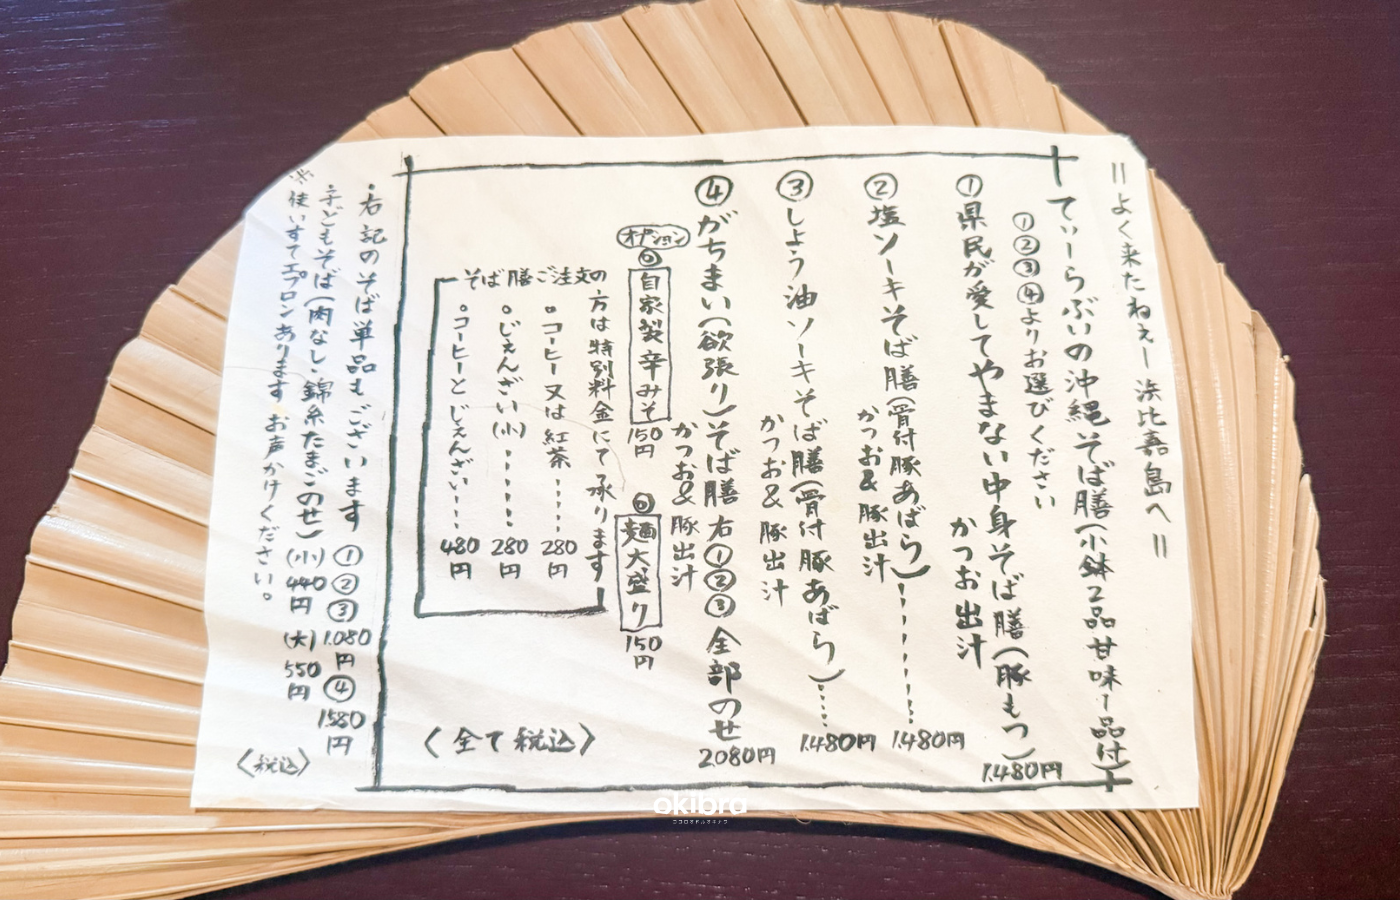 ＝よく来たねぇー浜比嘉島へ＝
てぃーらぶいの沖縄そば膳(小鉢2品甘味1品付)
①②③④よりお選びください
①県民が愛してやまない中身そば膳(豚もつ)
1.480円
かつお出汁
②塩ソーキそば膳(骨付豚あばら)……1.480円
かつお&豚出汁
③しょう油ソーキそば膳(骨付豚あばら)……1.480円
かつお&豚出汁
④がちまい(欲張り)そば膳 右①②③全部のせ
2.080円
かつお&豚出汁
オプション
◎自家製辛みそ 150円
◎麺大盛り 150円
そば膳ご注文の
方は特別料金にて承ります
○コーヒー又は紅茶……280円
○じぇんざい(小)……280円
○コーヒーとじぇんざい……480円
〈全て税込〉
・右記のそば単品もございます ①②③1.080円 ④1580円
・子どもそば(肉なし、錦糸たまごのせ)(小)440円 (大)550円
※使いすてエプロンあります お声かけください。
〈税込〉
okibra
ココロオドルオキナワ